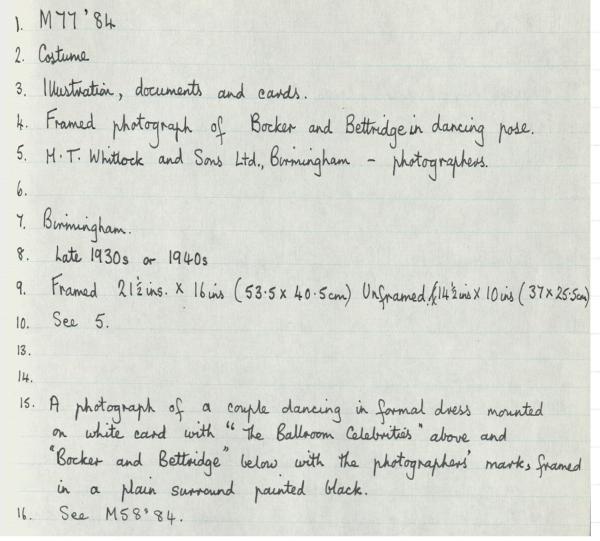 1. M77'84
2. Costume
3. Illustration, documents and cards.
4. Framed photograph of Bocker and Bettridge in dancing pose.
5. H.T. Whitlock and Sons Ltd., Birmingham - photographers.
6.
7. Birmingham.
8. Late 1930s or 1940s
9. Framed 21½ins. x 16ins (53.5 x 40.5cm) Unframed 14½ins x 10ins (37 x 25.5cm)
10. See 5.
13.
14.
15. A photograph of a couple dancing in formal dress mounted
on white card with "The Ballroom Celebrities" above and
"Bocker and Bettridge" below with the photographers' marks, framed
in a plain surround painted black.
16. See M58'84.